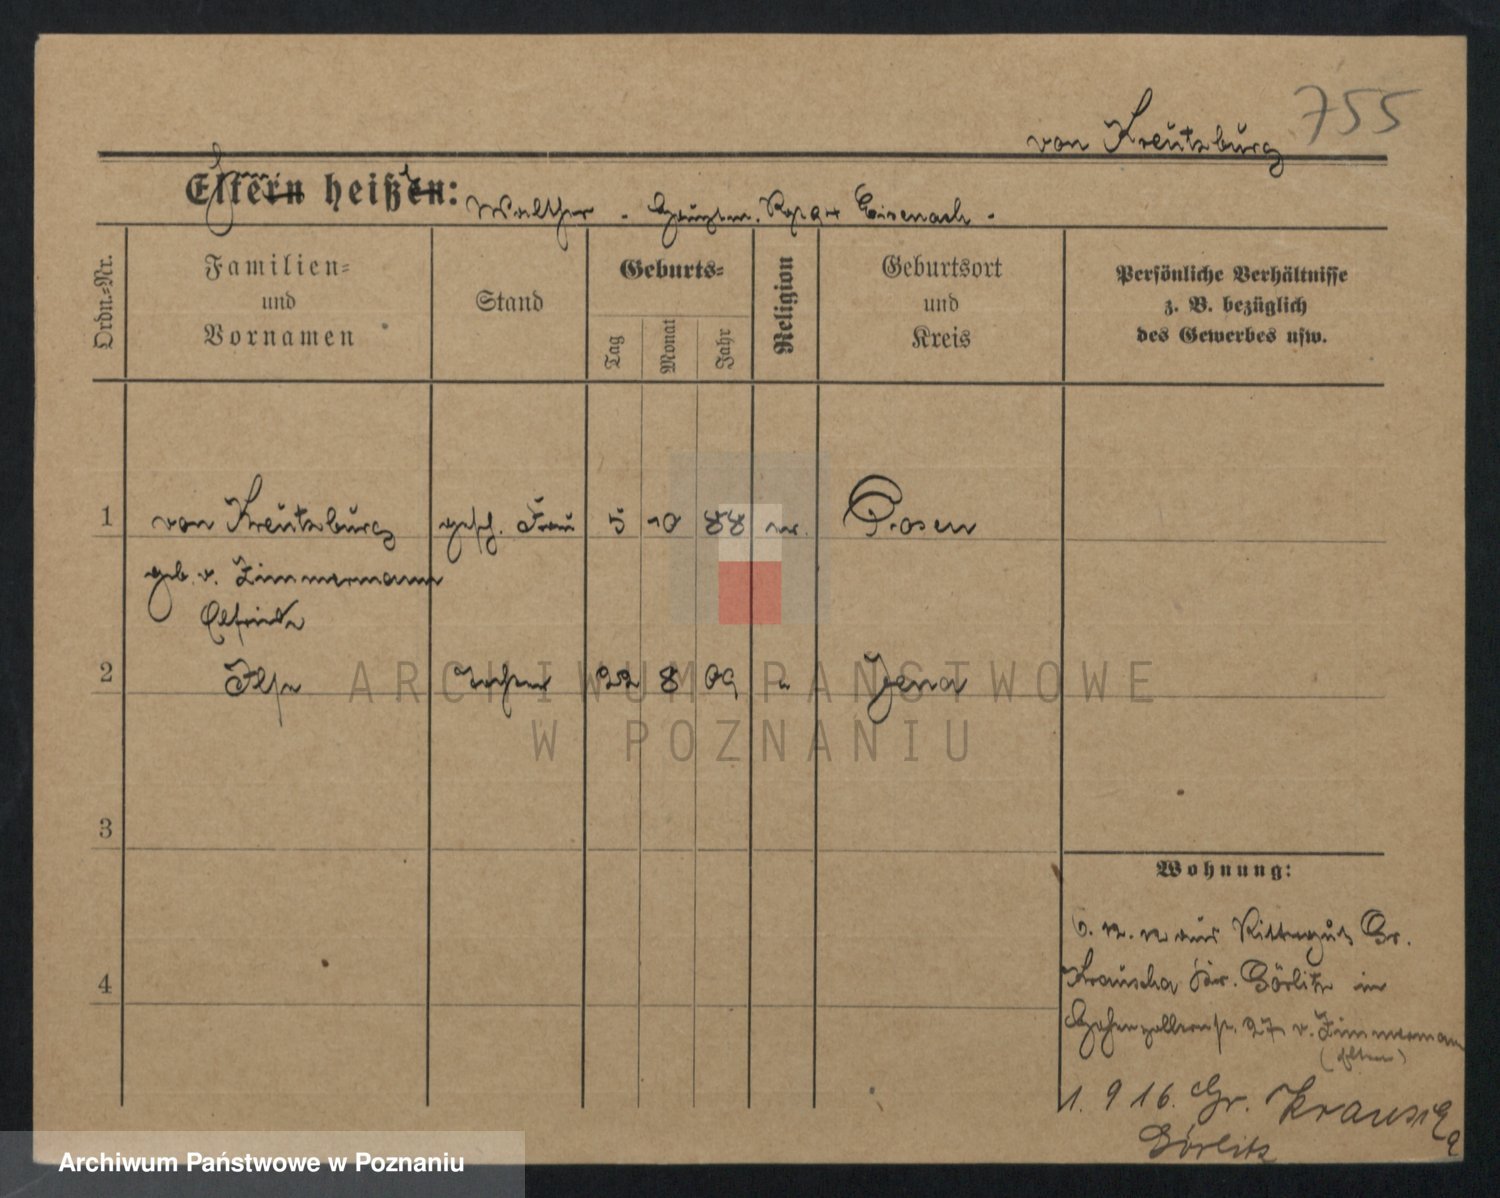 755
von Kreutzburg
Eltern heißen: Walther - Hauptm. Eisenach -
Ordn.-Nr.
Familien=
und
Vornamen
Stand
Geburts=
Tag
Monat
Jahr
Religion
Geburtsort
und
Kreis
Persönliche Verhältnisse
z. B. bezüglich
des Gewerbes usw.
1 von Kreutzburg gesch. Frau 5 10 88 ev. Posen
geb. v. Zimmermann
Elfriede
2 Ilse Tochter 22 8 09 " Jena
ARCHIWUM PAŃSTWOWE
W POZNANIU
3
Wohnung:
aus Rittergut Gr.
Krauscha Kr. Görlitz in
4
Hohenzollernstr. 27 v. Zimmermann
(Eltern)
1. 9 16. Gr. Krauscha
Görlitz
Archiwum Państwowe w Poznaniu